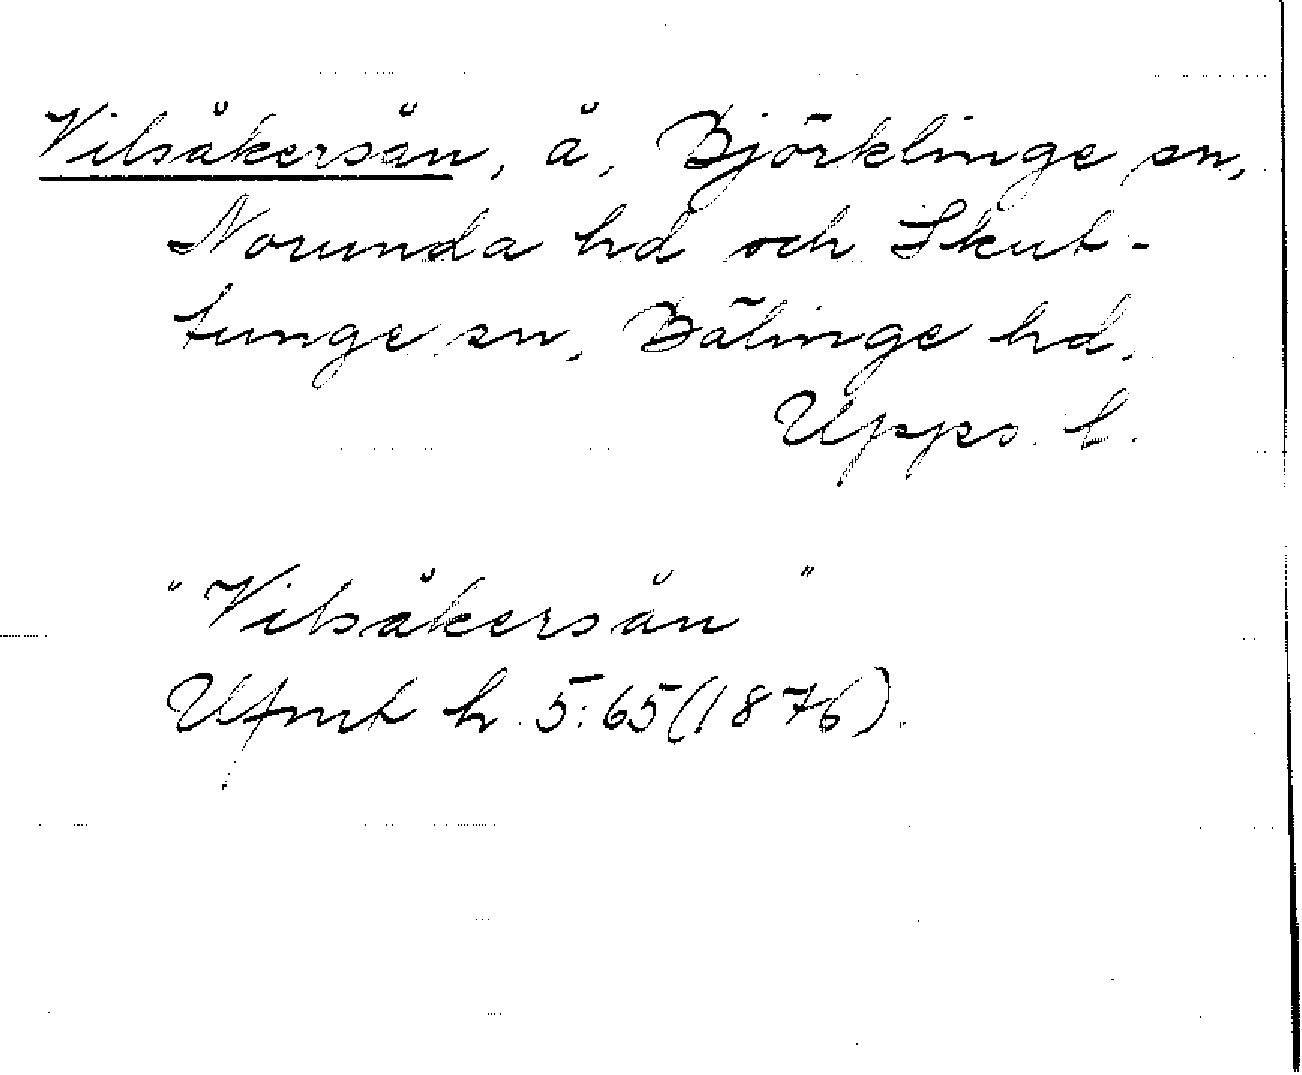 Vilsåkersån, å, Björklinge sn,
Norunda hd och Skut-
tunge sn, Bälinge hd,
Upps. l.
"Vilsåkersån"
Ufmt h. 5:65(1876).